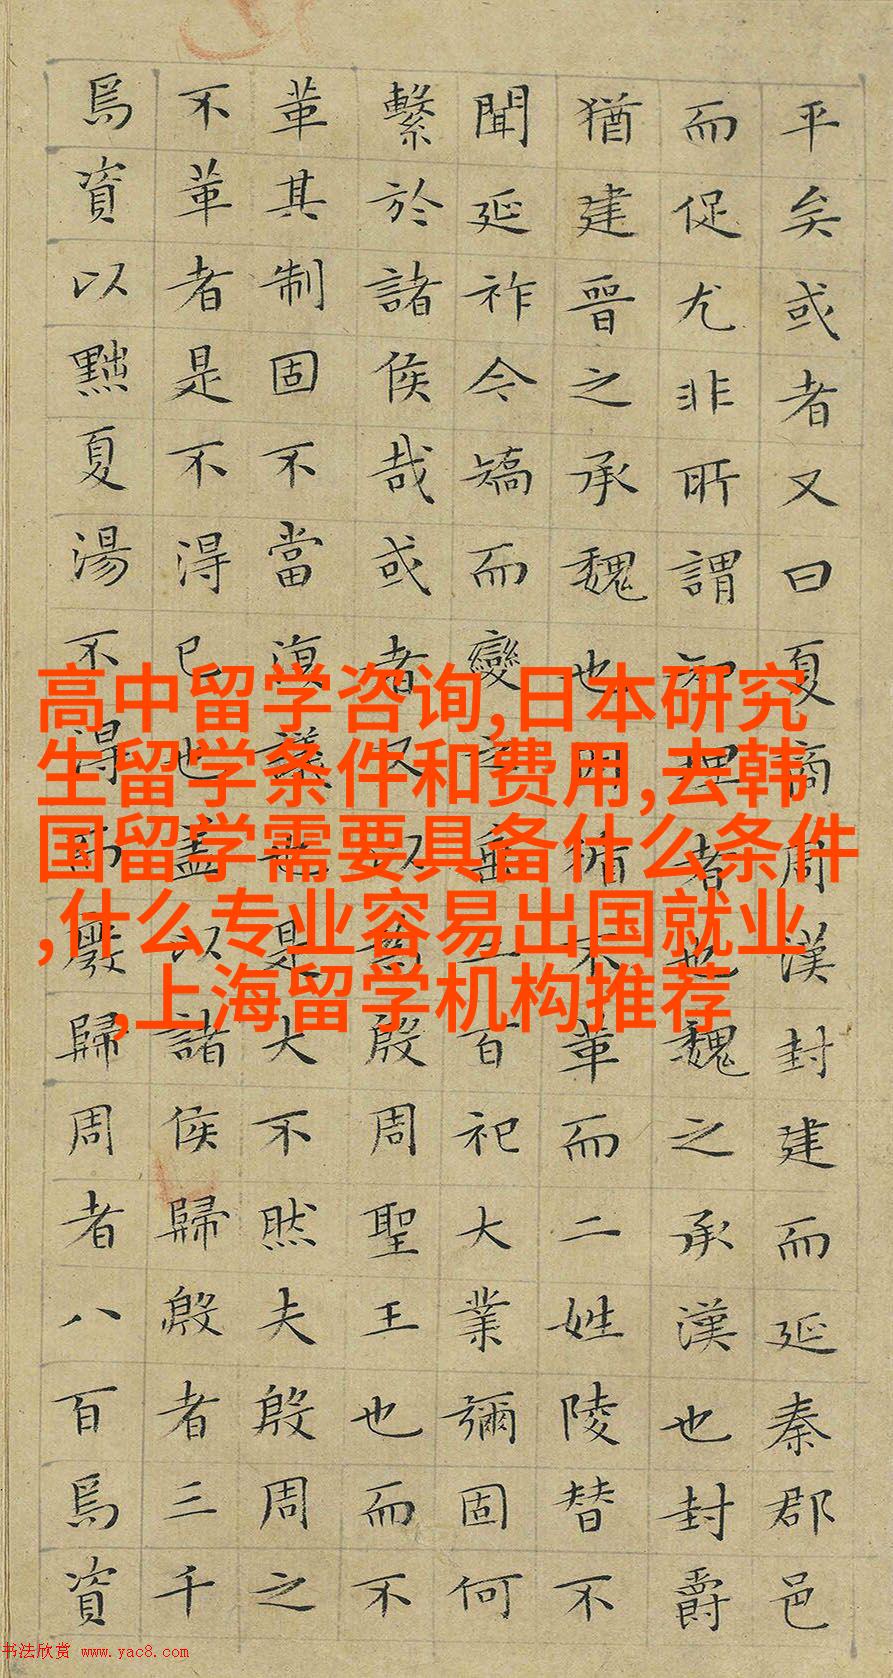 平矣或者又曰夏商周漢封建而延秦郡邑
而促尤非所謂知理者也魏之承漢也封爵
猶建晉之承魏也因循不革而二姓陵替不
聞延祚今矯而變之垂二百祀大業彌固何
繫於諸侯哉或者又以為殷周聖王也而不
革其制固不當復議也是大不然夫殷周之
不革者是不得已也蓋以諸侯歸殷者三千
焉資以黜夏湯不得而廢歸周者八百焉資
高中留学咨询,日本研究
生留学条件和费用,去韩
国留学需要具备什么条件
,什么专业容易出国就业
,上海留学机构推荐
书法欣赏 www.yac8.com